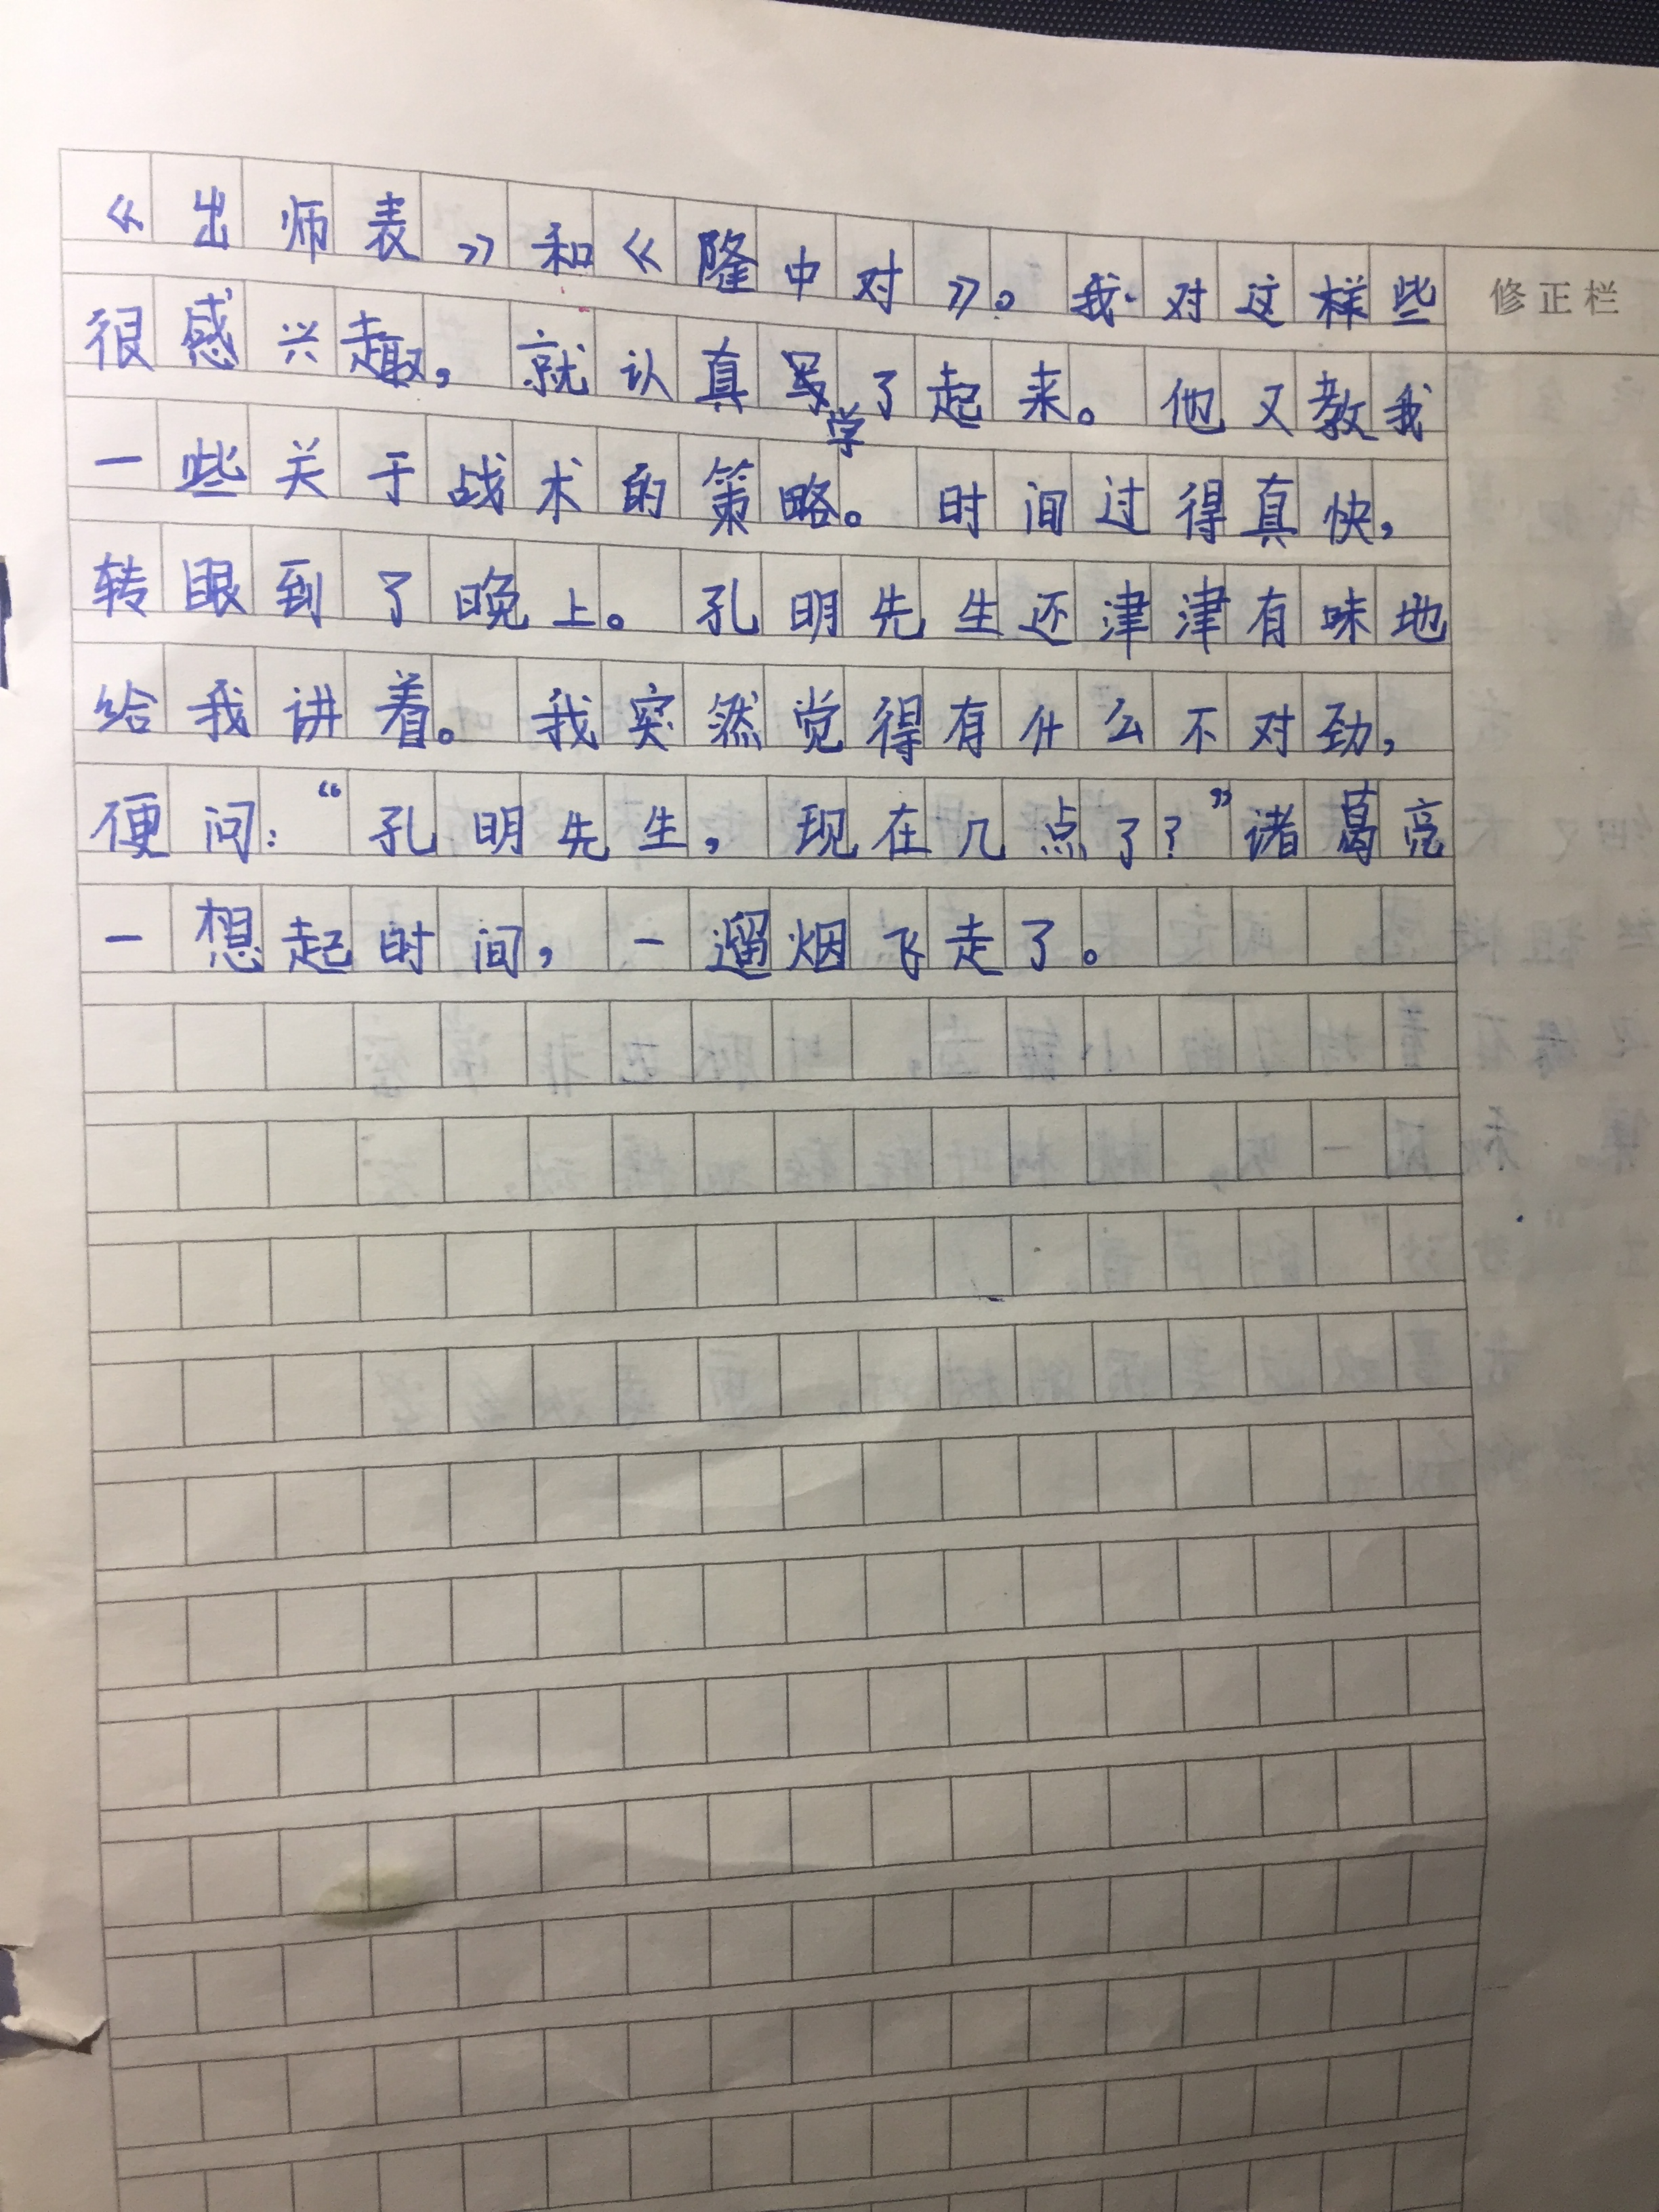 《出师表》和《隆中对》。我对这样些
修正栏
很感兴趣，就认真学了起来。他又教我
一些关于战术的策略。时间过得真快，
转眼到了晚上。孔明先生还津津有味地
给我讲着。我突然觉得有什么不对劲，
便问：“孔明先生，现在几点了？”诸葛亮
一想起时间，一遛烟飞走了。